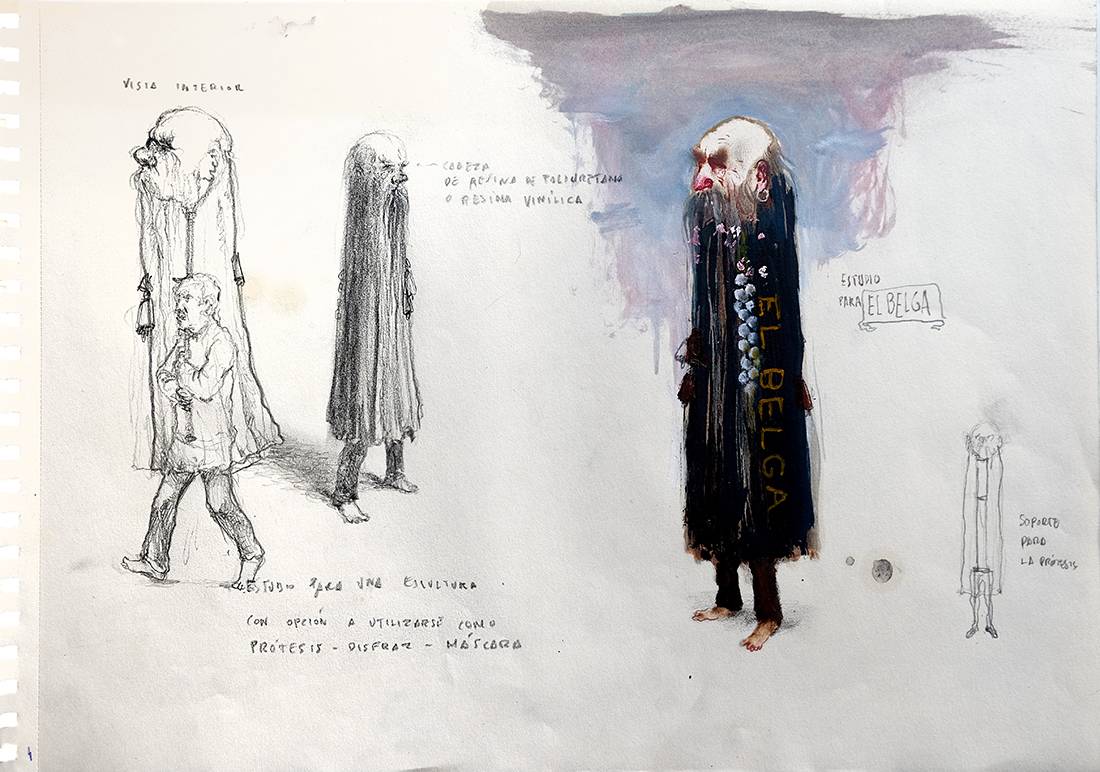 VISTA INTERIOR
CABEZA
DE RESINA DE POLIURETANO
O RESINA VINÍLICA
ESTUDIO
PARA EL BELGA
EL BELGA
SOPORTE
PARA
LA PRÓTESIS
ESTUDIO PARA UNA ESCULTURA
CON OPCIÓN A UTILIZARSE COMO
PRÓTESIS - DISFRAZ - MÁSCARA